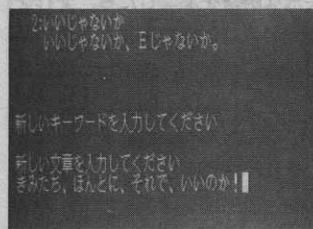 2:いいじゃないか
いいじゃないか、Eじゃないか。
新しいキーワードを入力してください
新しい文章を入力してください
きみたち、ほんとに、それで、いいのか!